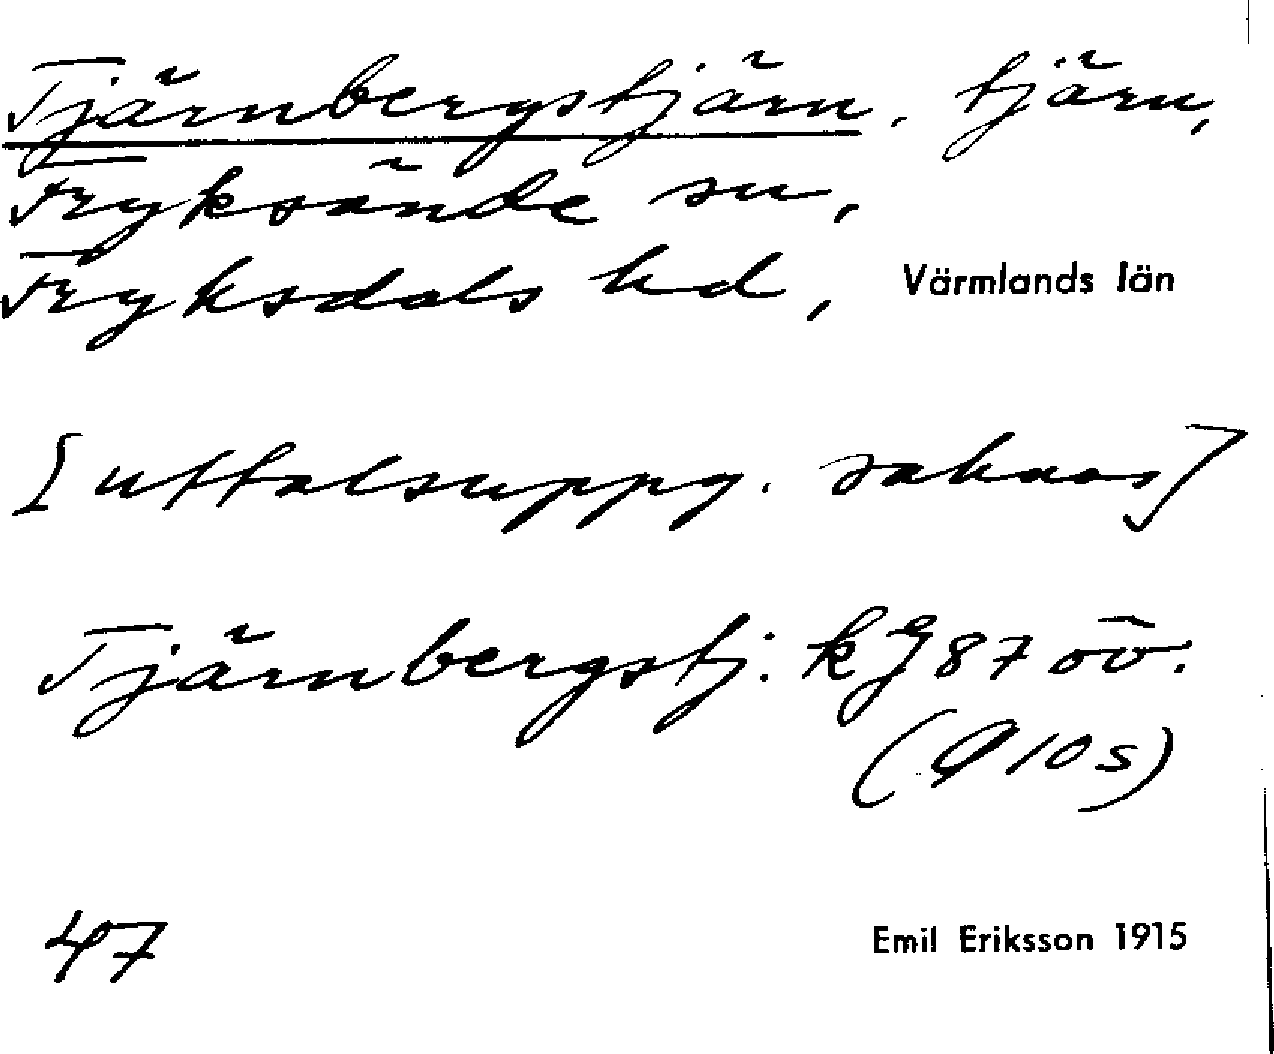 Tjärnbergstjärn. tjärn,
Fryksände sn,
Fryksdals hd, Värmlands län
[uttalsuppg. saknas]
Tjärnbergstj: kg 87 öv.
(Q 10 s)
47
Emil Eriksson 1915